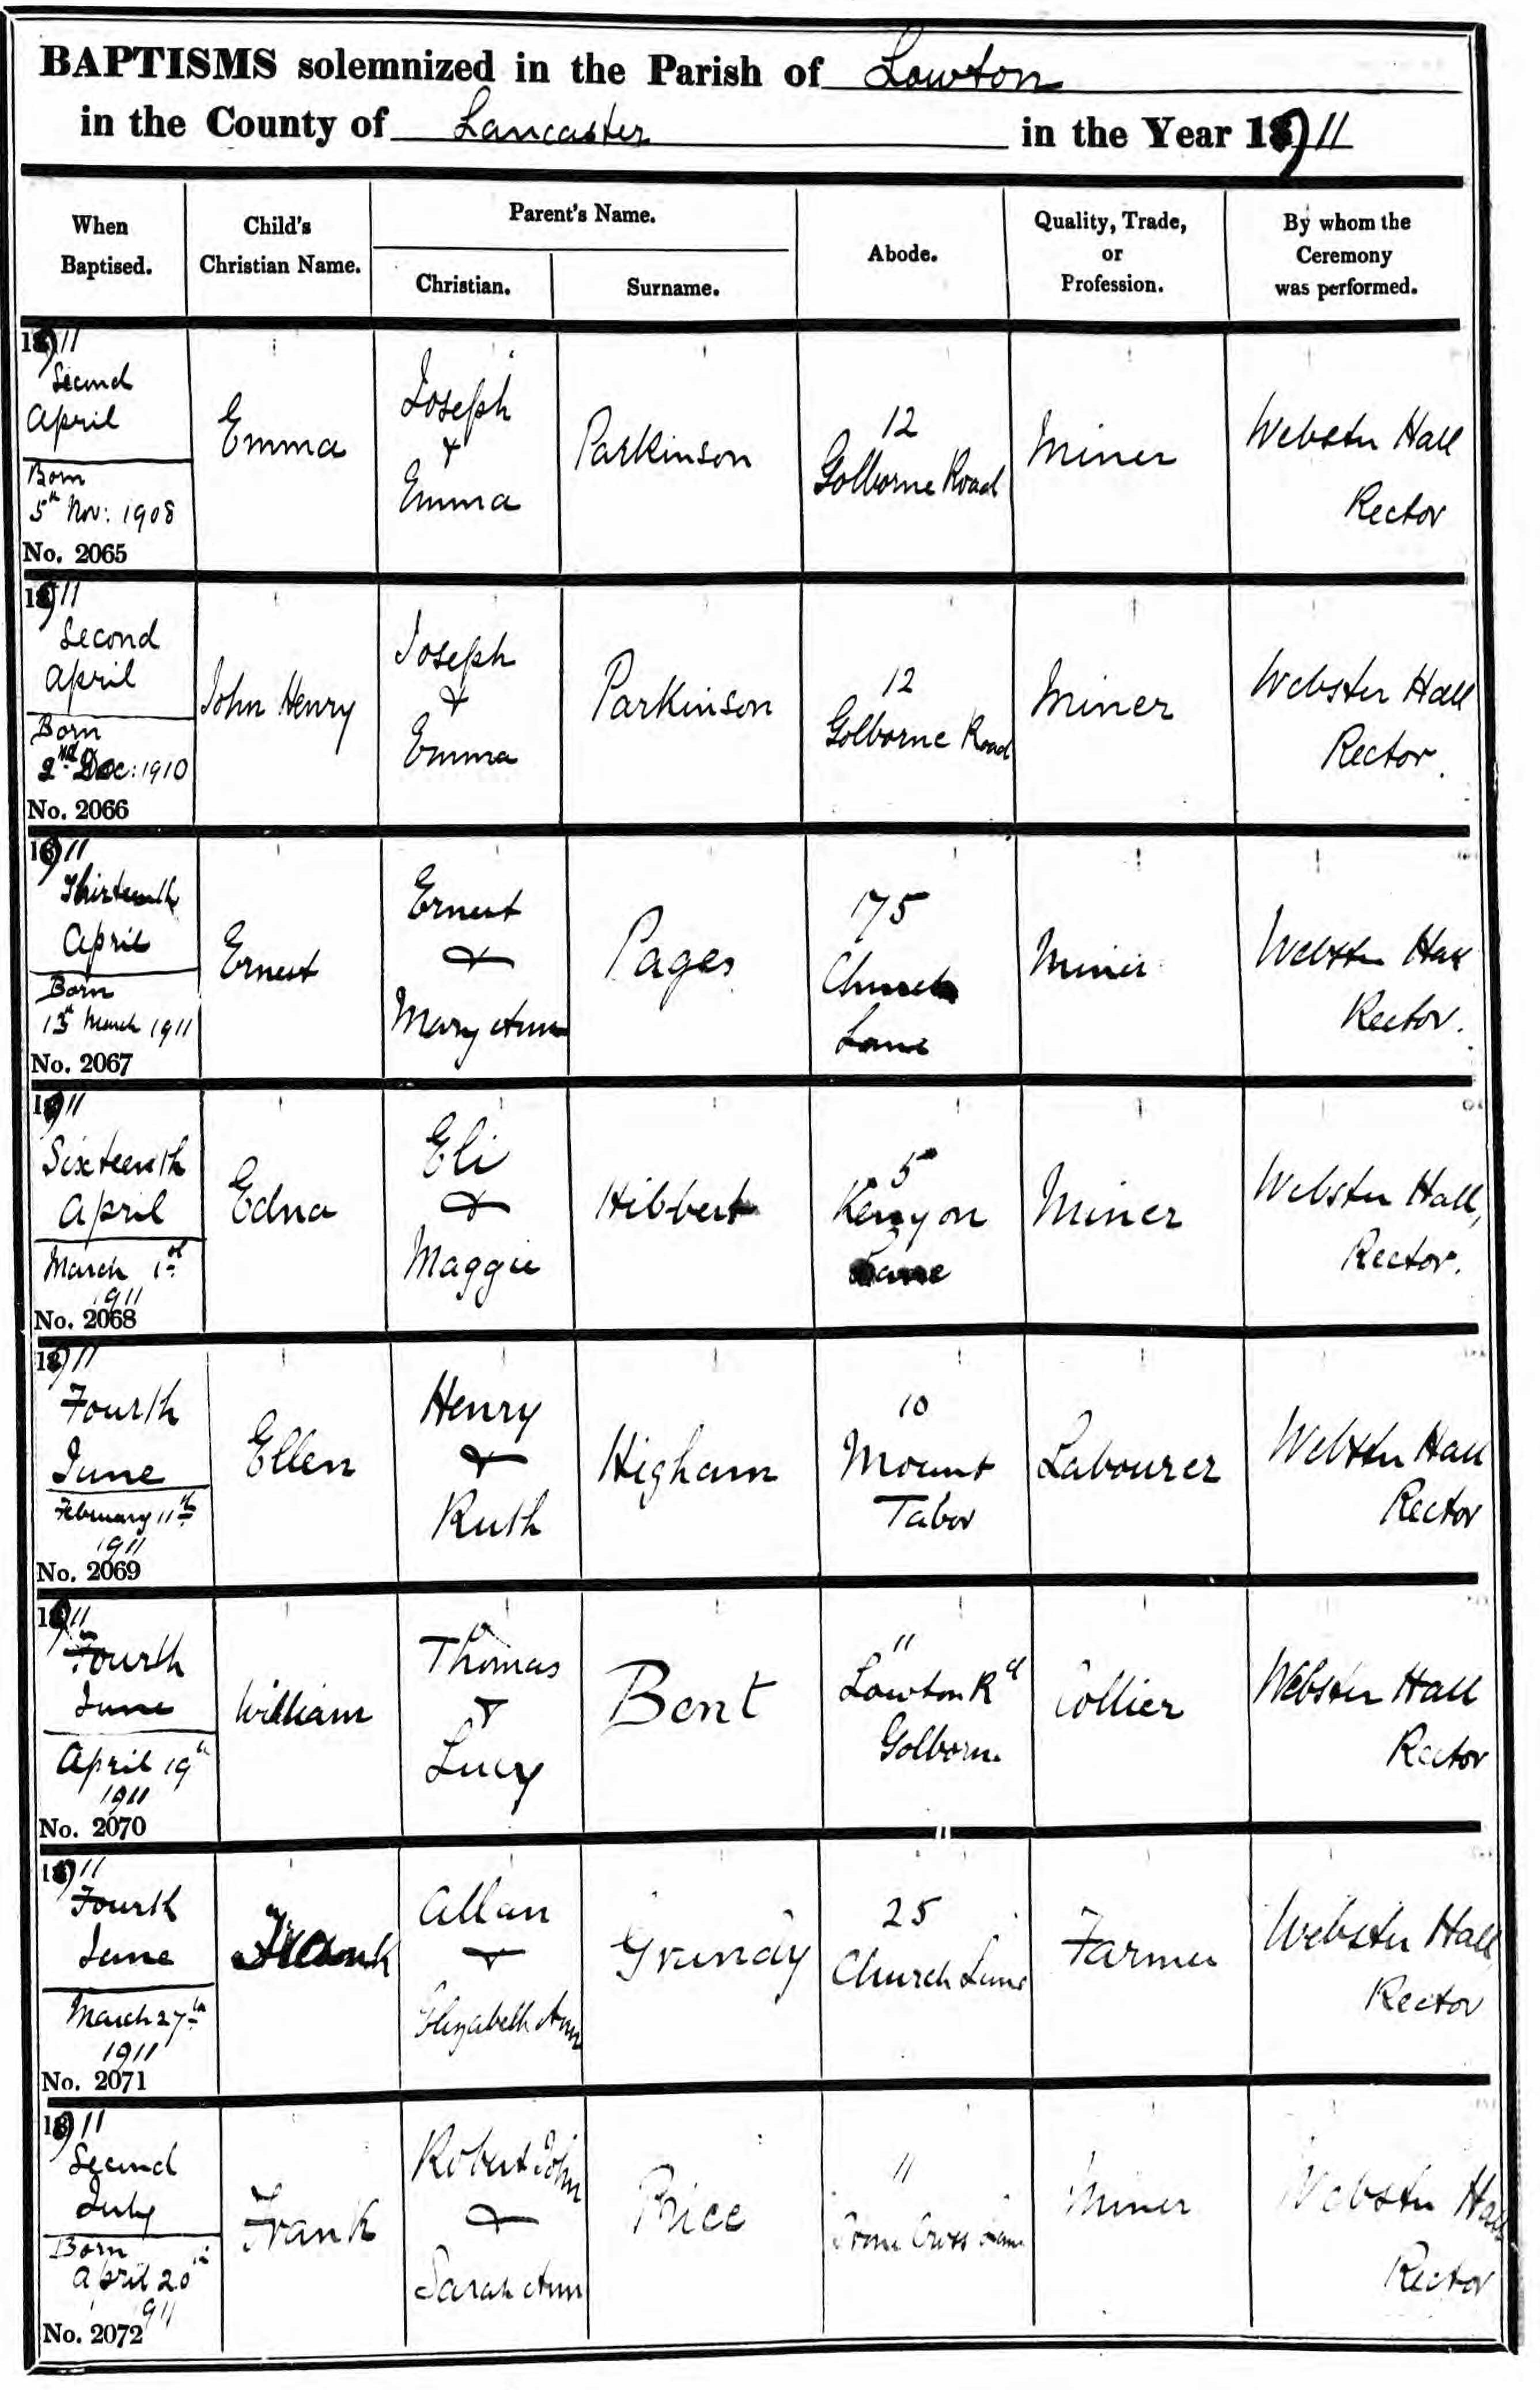 BAPTISMS solemnized in the Parish of Lowton
in the County of Lancaster in the Year 1911
When Baptised.
Child's Christian Name.
Parent's Name.
Christian.
Surname.
Abode.
Quality, Trade, or Profession.
By whom the Ceremony was performed.
1911
Second
April
Born
5th Nov: 1908
No. 2065
Emma
Joseph
&
Emma
Parkinson
12
Golborne Road
Miner
Webster Hall
Rector
1911
Second
April
Born
2nd Dec: 1910
No. 2066
John Henry
Joseph
&
Emma
Parkinson
12
Golborne Road
Miner
Webster Hall
Rector.
1911
Thirteenth
April
Born
13th March 1911
No. 2067
Ernest
Ernest
&
Mary Ann
Pages
175
Church
Lane
Miner
Webster Hall
Rector.
1911
Sixteenth
April
March 1st
1911
No. 2068
Edna
Eli
&
Maggie
Hibbert
5
Kenyon
Lane
Miner
Webster Hall,
Rector.
1911
Fourth
June
February 11th
1911
No. 2069
Ellen
Henry
&
Ruth
Higham
10
Mount
Tabor
Labourer
Webster Hall
Rector
1911
Fourth
June
April 19th
1911
No. 2070
William
Thomas
&
Lucy
Bent
11
Lowton Rd
Golborne
Collier
Webster Hall
Rector
1911
Fourth
June
March 27th
1911
No. 2071
Frank
Allan
&
Elizabeth Ann
Grundy
25
Church Lane
Farmer
Webster Hall
Rector
1911
Second
July
Born
April 20th
1911
No. 2072
Frank
Robert John
&
Sarah Ann
Price
11
Stone Cross Lane
Miner
Webster Hall
Rector